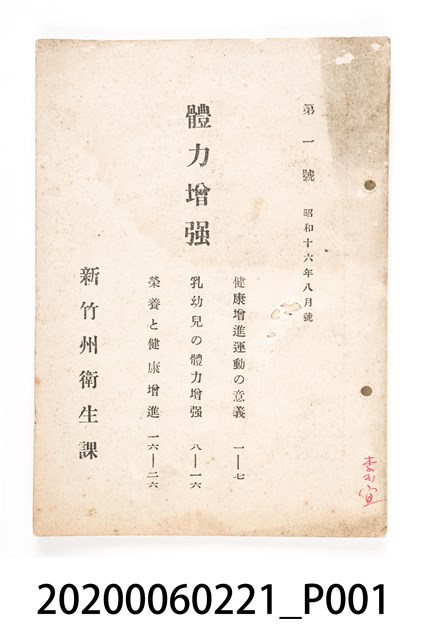 第一號 昭和十六年八月號
體力增强
健康增進運動の意義 一—七
乳幼兒の體力增强 八—一六
榮養と健康增進 一六—二六
新竹州衞生課
20200060221_P001